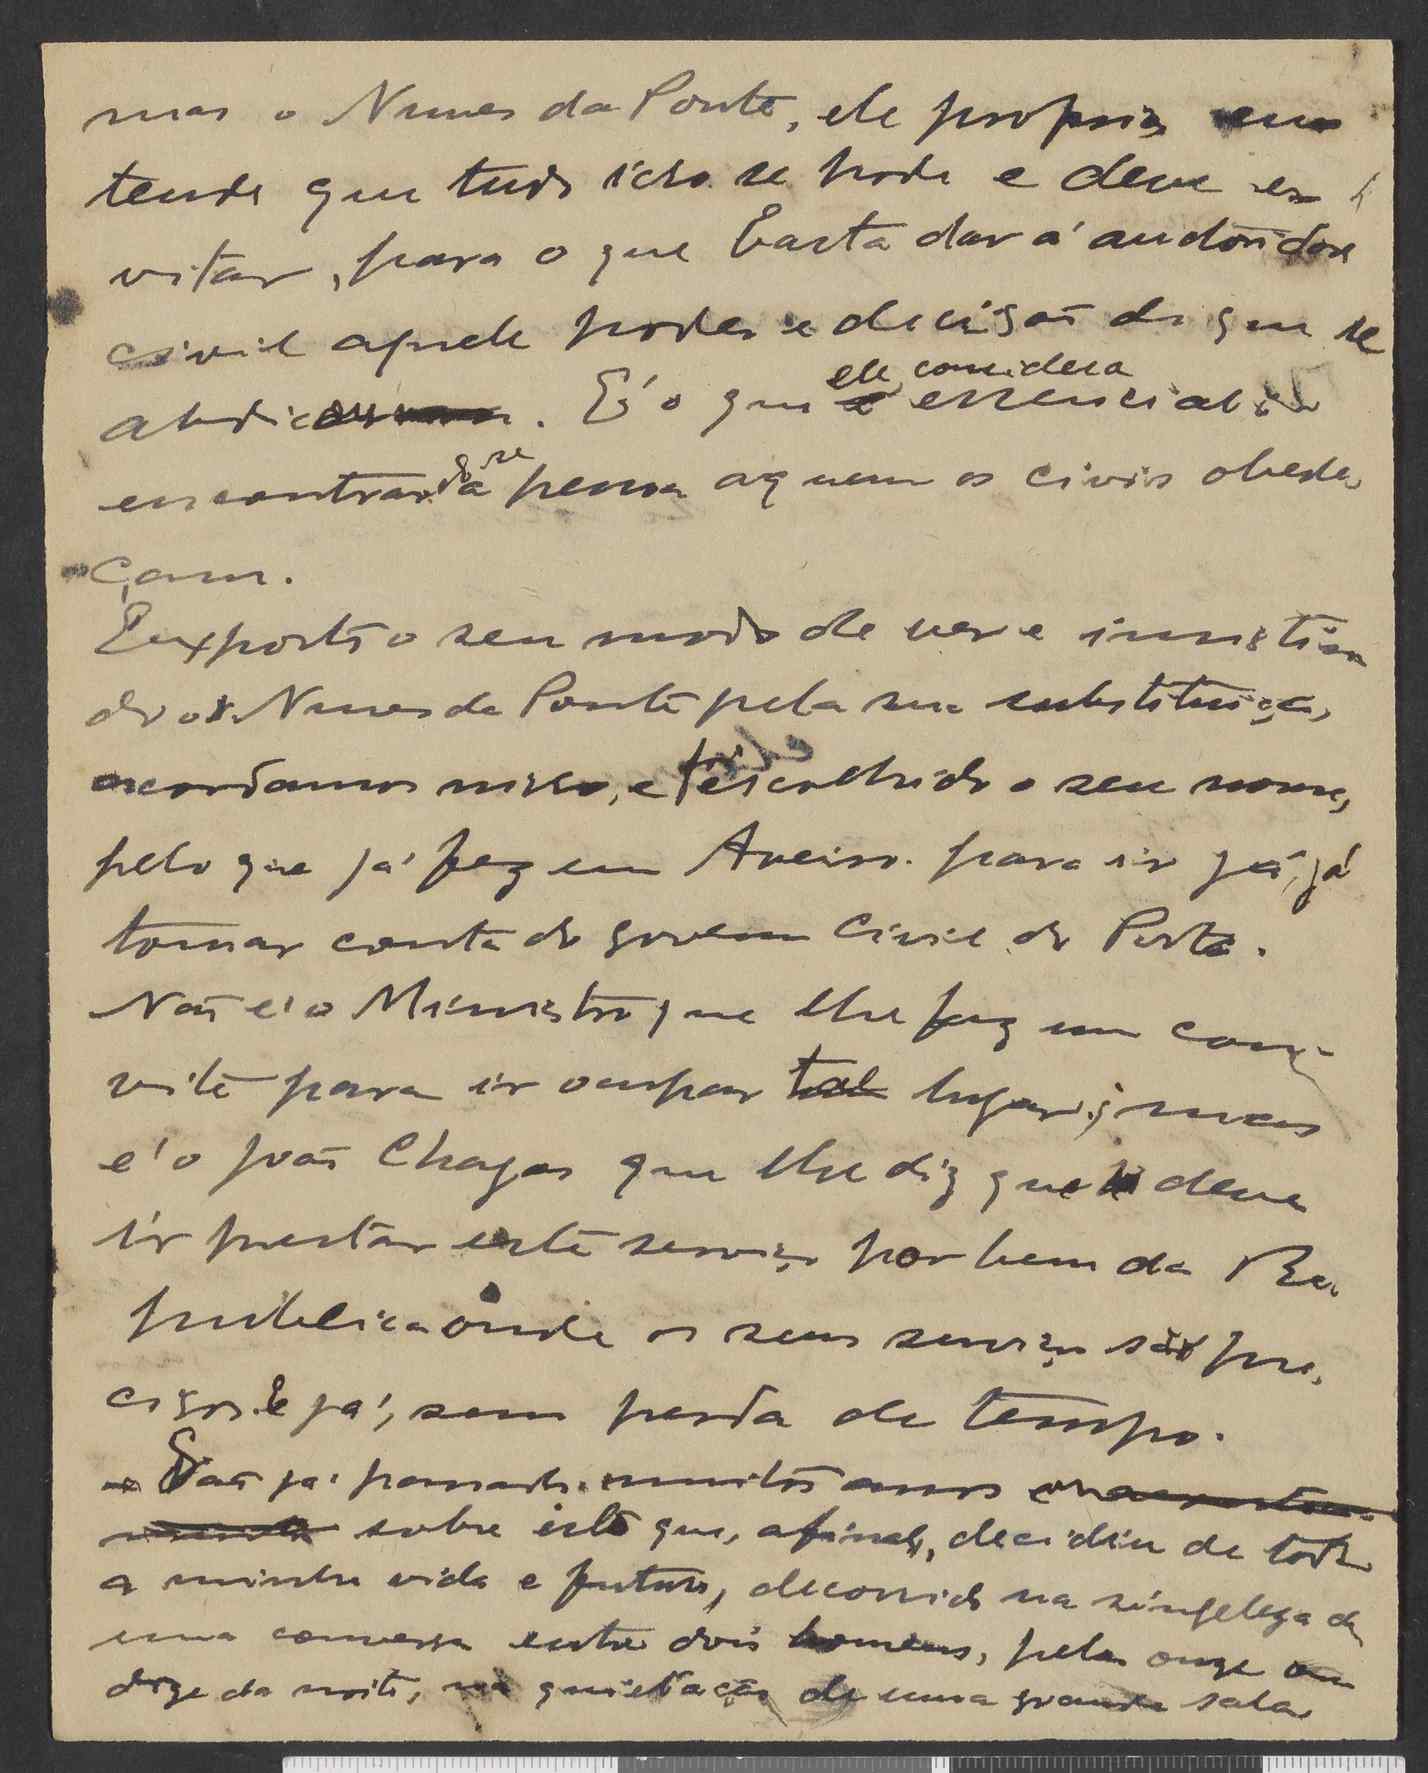 mas o Nunes da Ponte, ele proprio en
tende que tudo isso se pode e deve e
vitar, para o que basta dar á autoridade
civil aquele poder e decisão de que se
abdicou. É o que ele considera essencial é
encontrar-se a pessoa a quem os civis obede,
çam.
Exposto o seu modo de ver e insistin
do o Nunes da Ponte pela sua substituição,
acordamos nisso, e foi escolhido o seu nome,
pelo que já fez em Aveiro. para ir já, já
tomar conta do governo civil do Porto.
Não é o Ministro que lhe faz um con-
vite para ir ocupar tal lugar; mas
é o João Chagas que lhe diz que deve
ir prestar este serviço por bem da Re
publica onde os seus serviços são pre,
cisos. E já, sem perda de tempo.
São já passados muitos anos
sobre isto que, afinal, decidiu de toda
a minha vida e futuro, decorrido na singeleza de
uma conversa entre dois homens, pelas onze ou
doze da noite, na quietação de uma grande sala